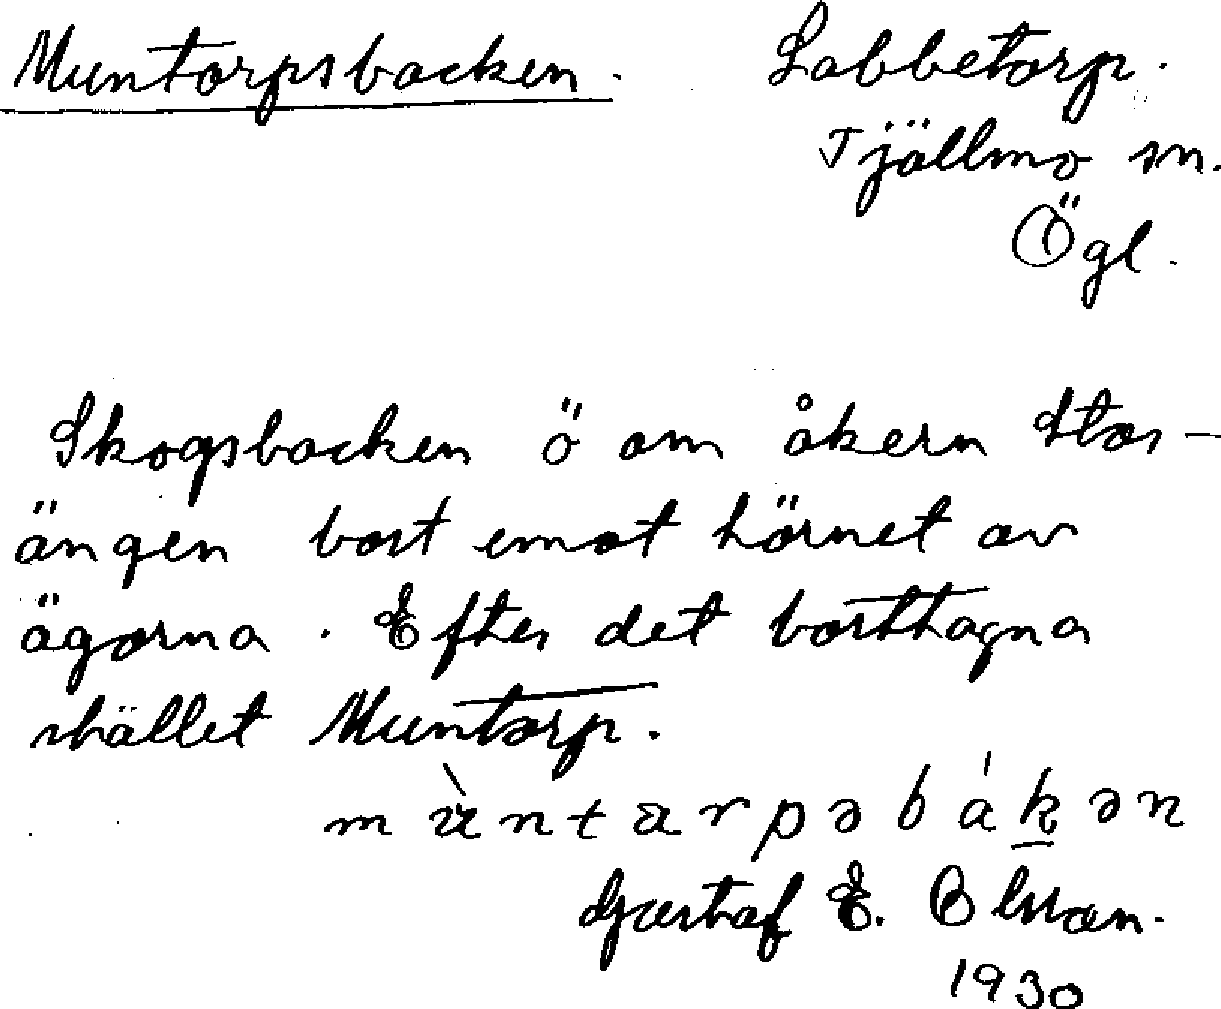 Muntorpsbacken. Labbetorp.
Tjällmo sn.
Ögl.
Skogsbacken ö om åkern Stor-
ängen bort emot hörnet av
ägorna. Efter det borttagna
stället Muntorp.
Gustaf E. Olsson.
1930